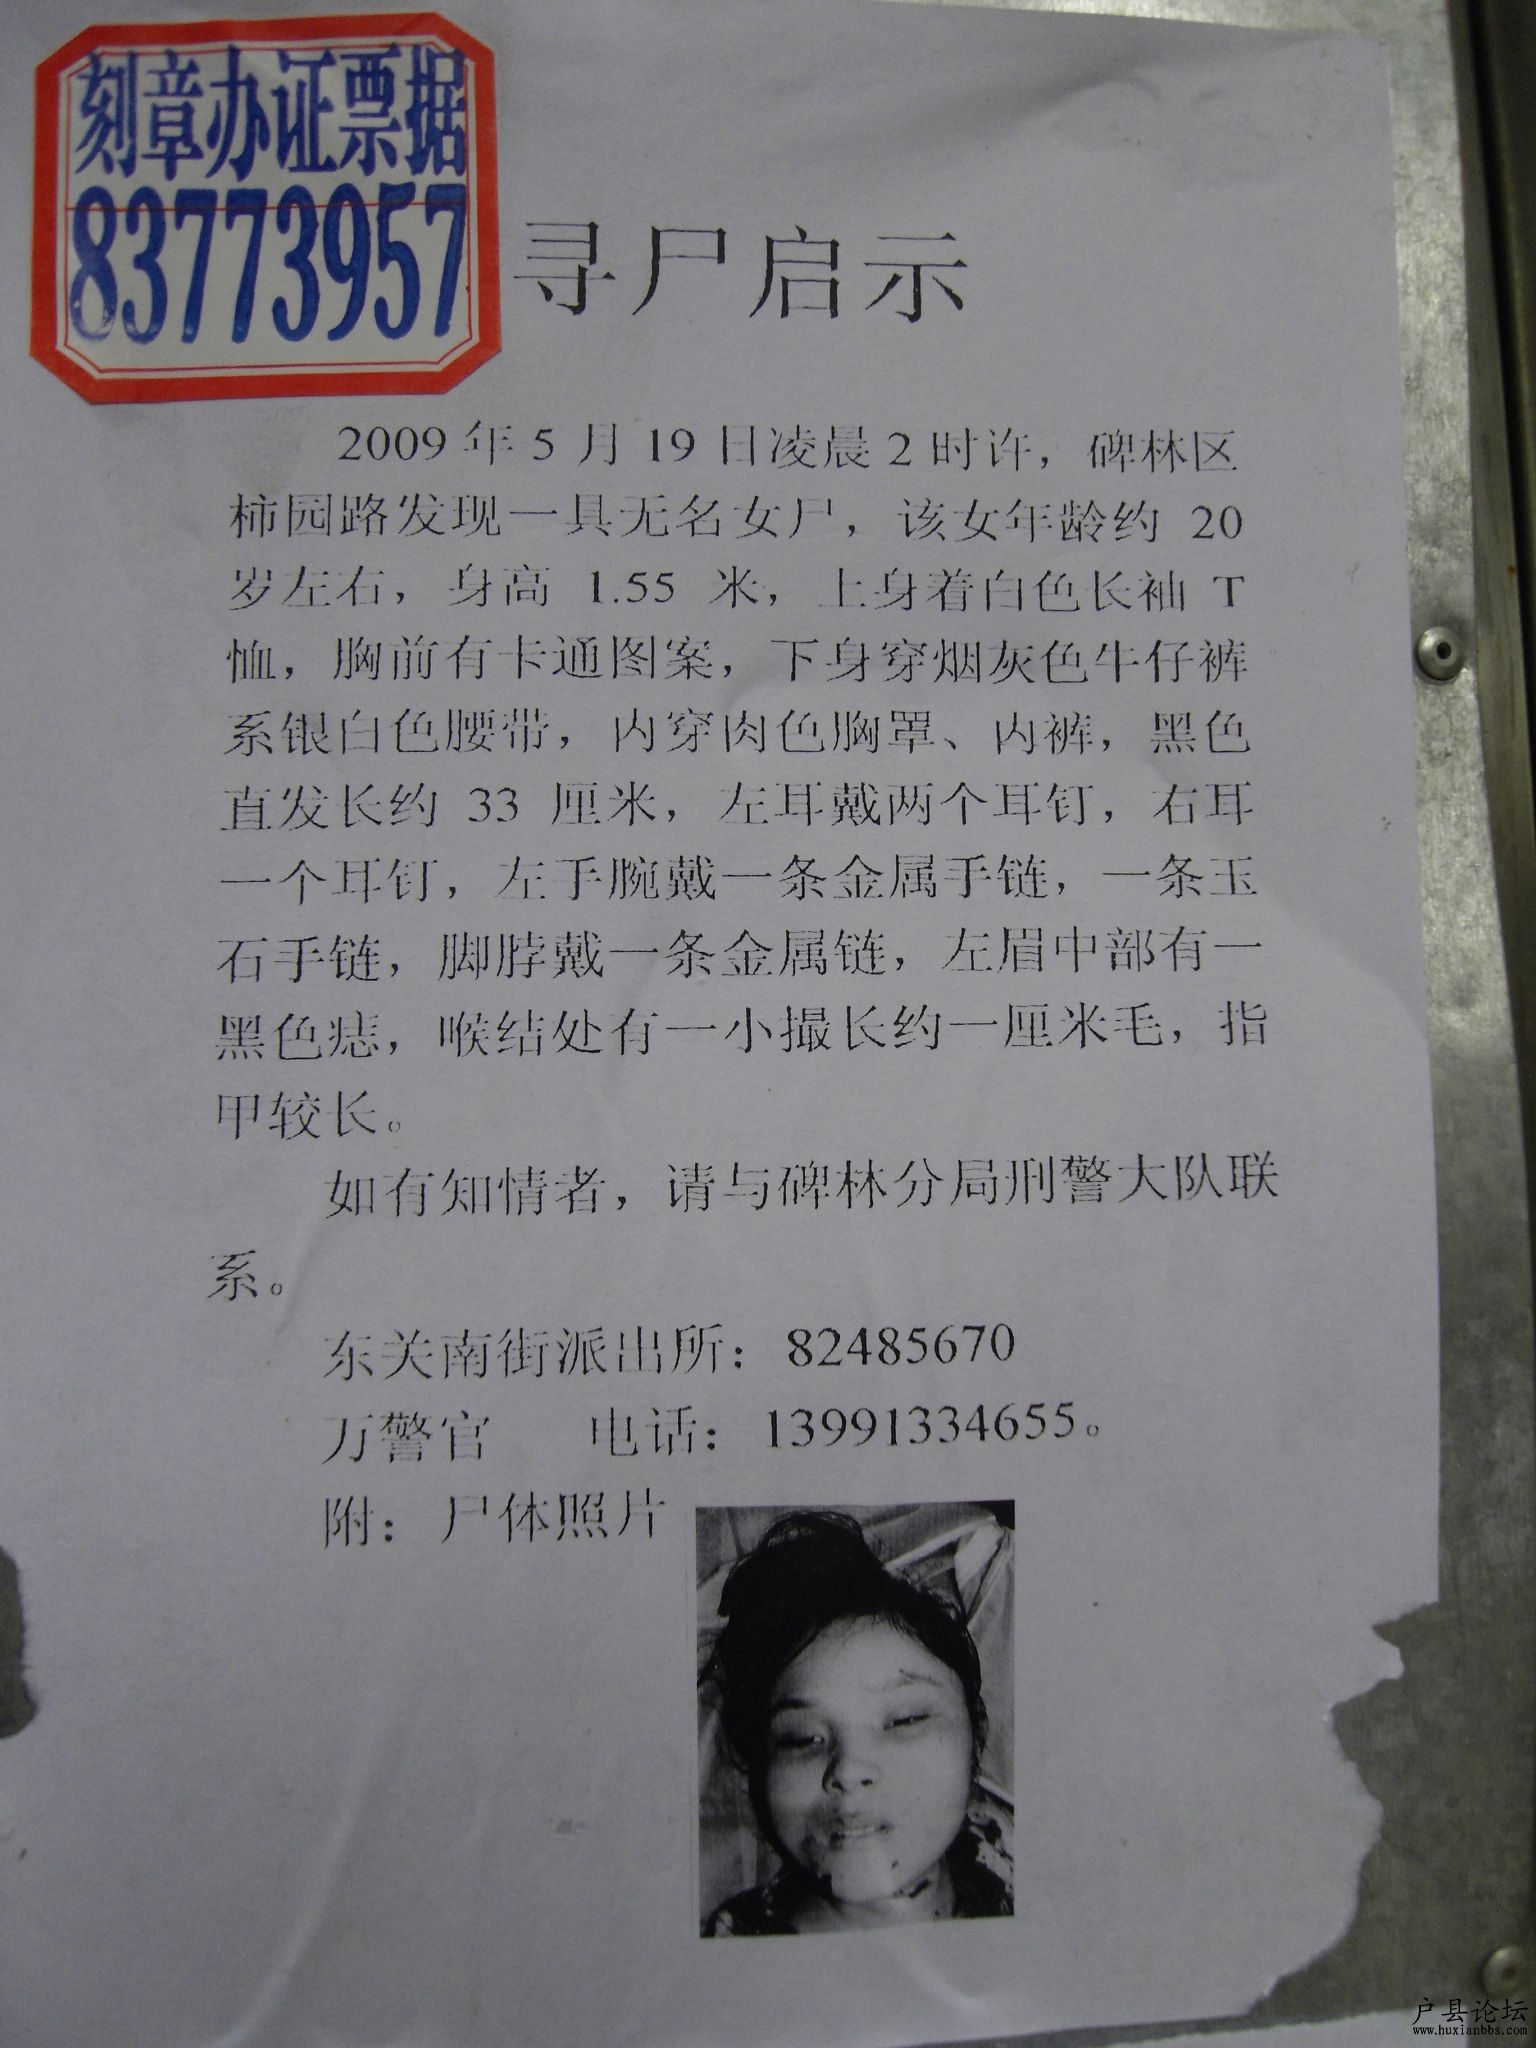 刻章办证票据
83773957
寻尸启示
2009年5月19日凌晨2时许，碑林区
柿园路发现一具无名女尸，该女年龄约 20
岁左右，身高 1.55 米，上身着白色长袖 T
恤，胸前有卡通图案，下身穿烟灰色牛仔裤
系银白色腰带，内穿肉色胸罩、内裤，黑色
直发长约 33 厘米，左耳戴两个耳钉，右耳
一个耳钉，左手腕戴一条金属手链，一条玉
石手链，脚脖戴一条金属链，左眉中部有一
黑色痣，喉结处有一小撮长约一厘米毛，指
甲较长。
如有知情者，请与碑林分局刑警大队联
系。
东关南街派出所：82485670
万警官 电话：13991334655。
附：尸体照片
户县论坛
www.huxianbbs.com